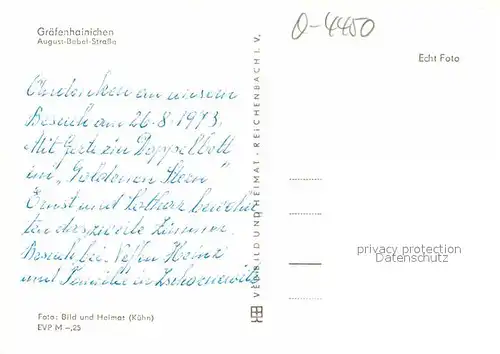 Gräfenhainichen
August-Bebel-Straße
O-4450
Echt Foto
Andenken an unsern
Besuch am 26.8.1973.
Mit Gerte im Doppelbett
im „Goldenen Stern"
Ernst und Lothar bewohn
ten das zweite Zimmer.
Besuch bei Neffen Heinz
und Familie in Zschornewitz
VEB BILD UND HEIMAT · REICHENBACH I. V.
privacy protection
Datenschutz
Foto: Bild und Heimat (Kühn)
EVP M –,25